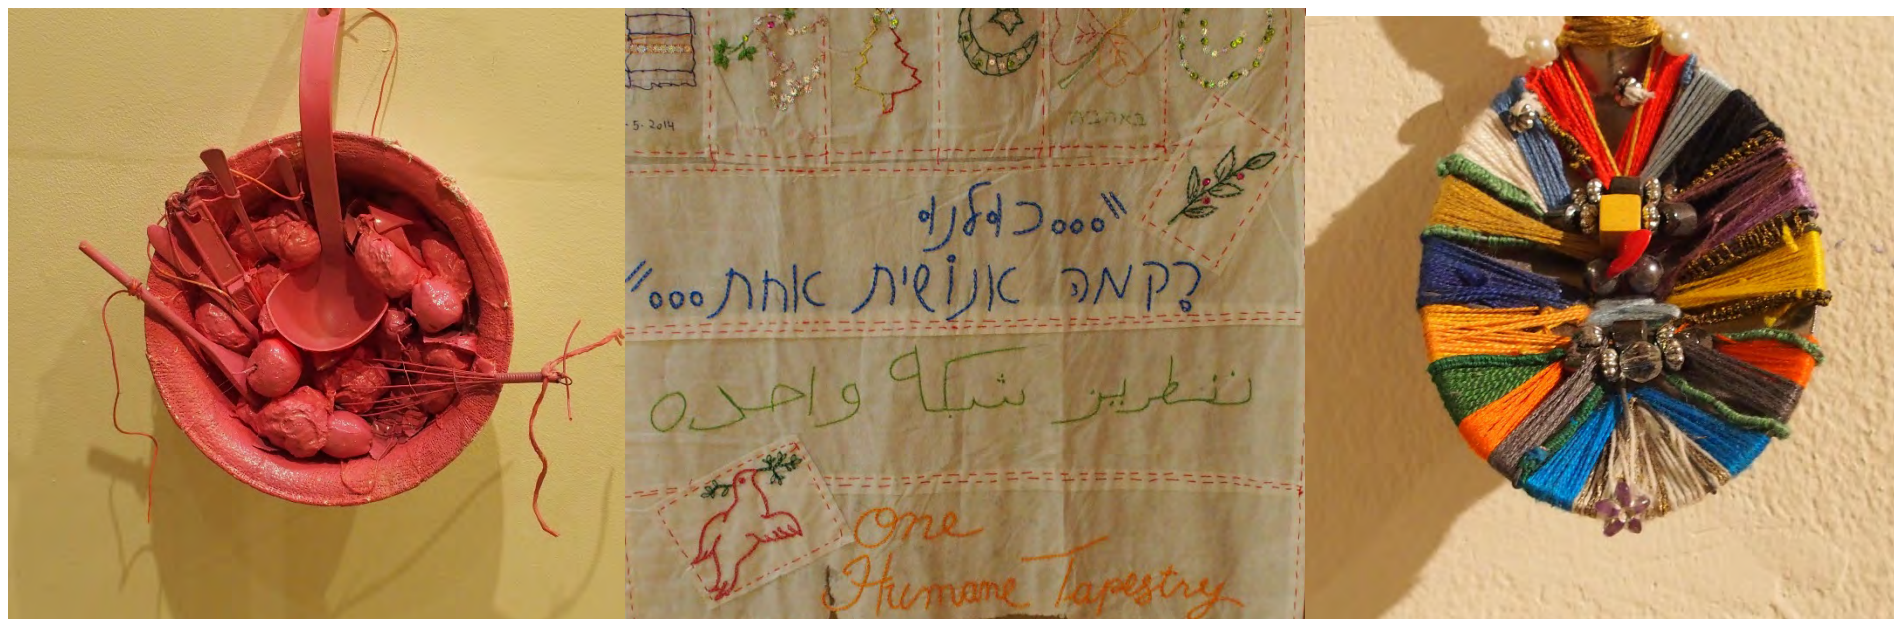 - 5 - 2014
באהבה
"...כולנו
רקמה אנושית אחת..."
شبكة واحده
One
Humane Tapestry